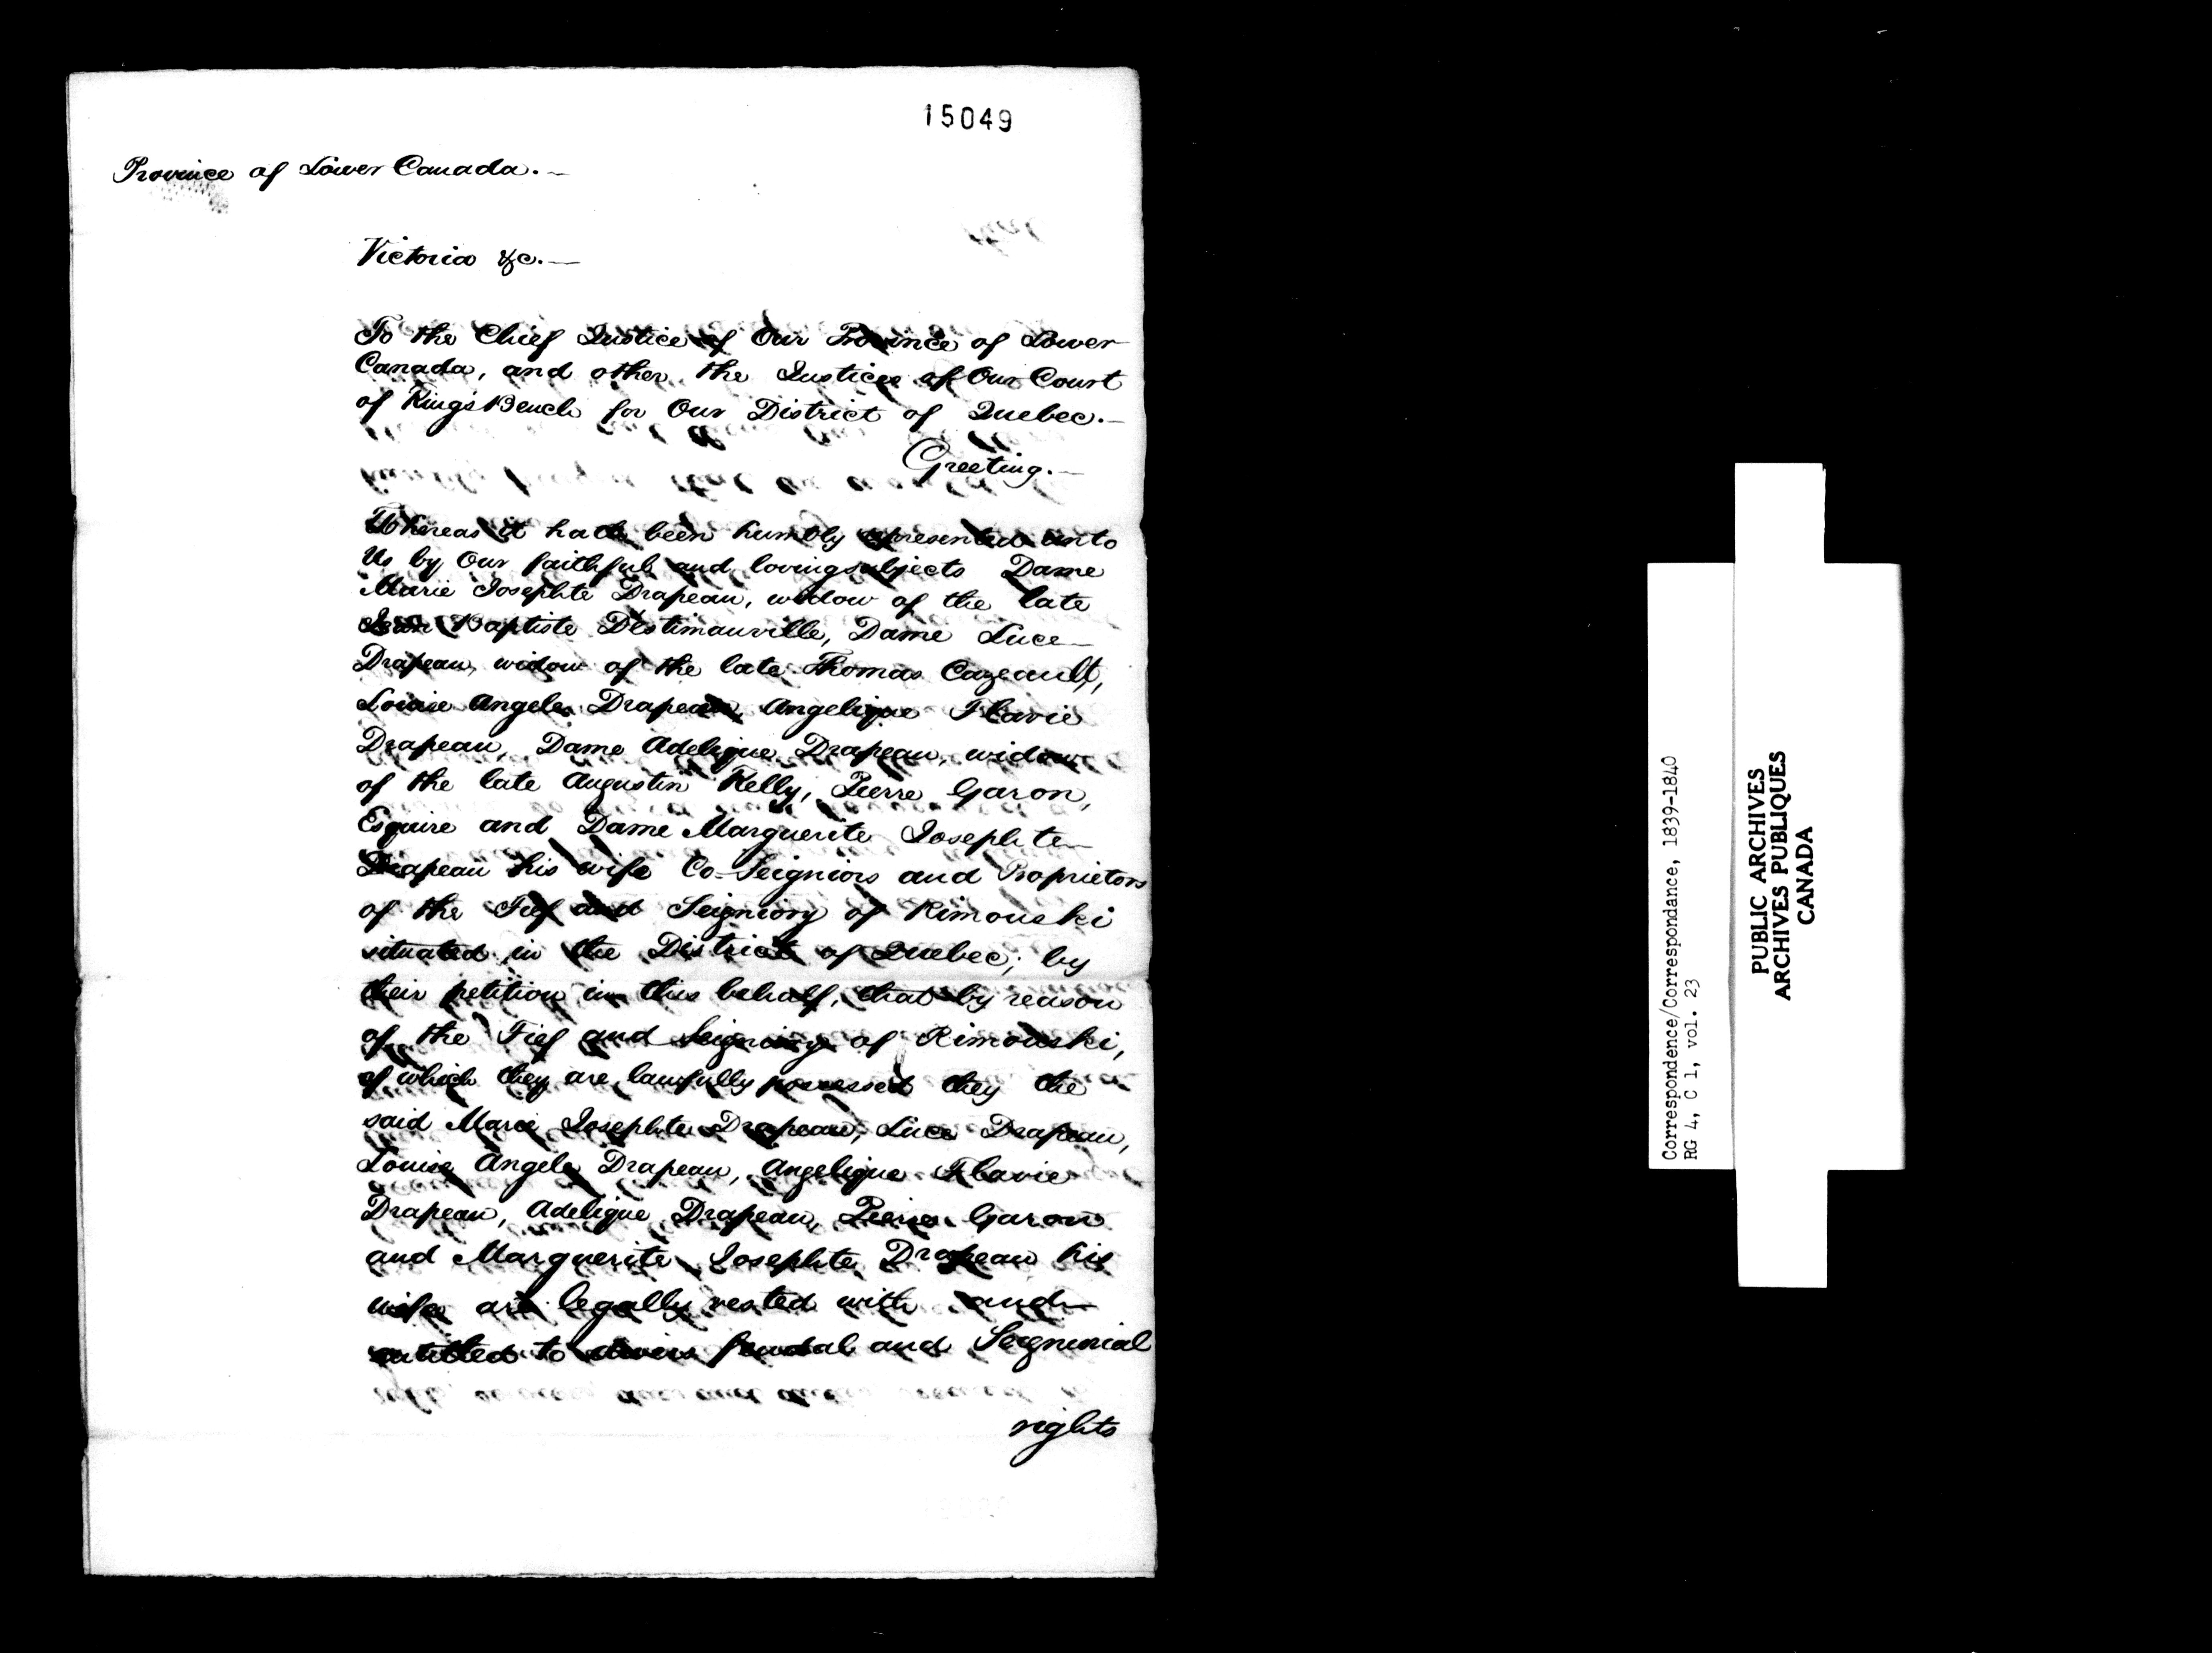 15049
Province of Lower Canada.—
Victoria &c.—
To the Chief Justice of Our Province of Lower
Canada, and other the Justices of Our Court
of King's Bench for Our District of Quebec.—
Greeting.—
Whereas it hath been humbly represented unto
Us by Our faithful and loving subjects Dame
Marie Josephte Drapeau, widow of the late
Jean Baptiste Destimauville, Dame Luce
Drapeau, widow of the late Thomas Cazeault,
Louise Angele Drapeau, Angelique Flavie
Drapeau, Dame Adeligue Drapeau, widow
of the late Augustin Kelly, Pierre Garon,
Esquire and Dame Marguerite Josephte
Drapeau his wife Co-Seigniors and Proprietors
of the Fief and Seigniory of Rimouski
situated in the District of Quebec; by
their petition in this behalf, that by reason
of the Fief and Seigniory of Rimouski,
of which they are lawfully possessed they the
said Marie Josephte Drapeau, Luce Drapeau,
Louise Angele Drapeau, Angelique Flavie
Drapeau, Adeligue Drapeau, Pierre Garon
and Marguerite Josephte Drapeau his
wife are legally vested with and
entitled to divers feudal and Seignorial
rights
Correspondence/Correspondance, 1839-1840
RG 4, C 1, vol. 23
PUBLIC ARCHIVES
ARCHIVES PUBLIQUES
CANADA